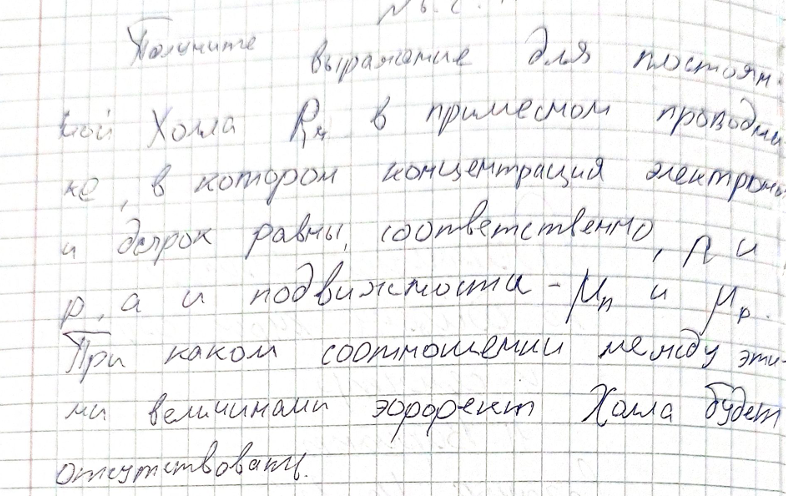 Получите выражение для постоян-
ной Холла R_H в примесном проводни
ке, в котором концентрация электроно
и дырок равны, соответственно, n и
p, а и подвижности - μ_n и μ_p.
При каком соотношении между эти-
ми величинами эффект Холла будет
отсутствовать.